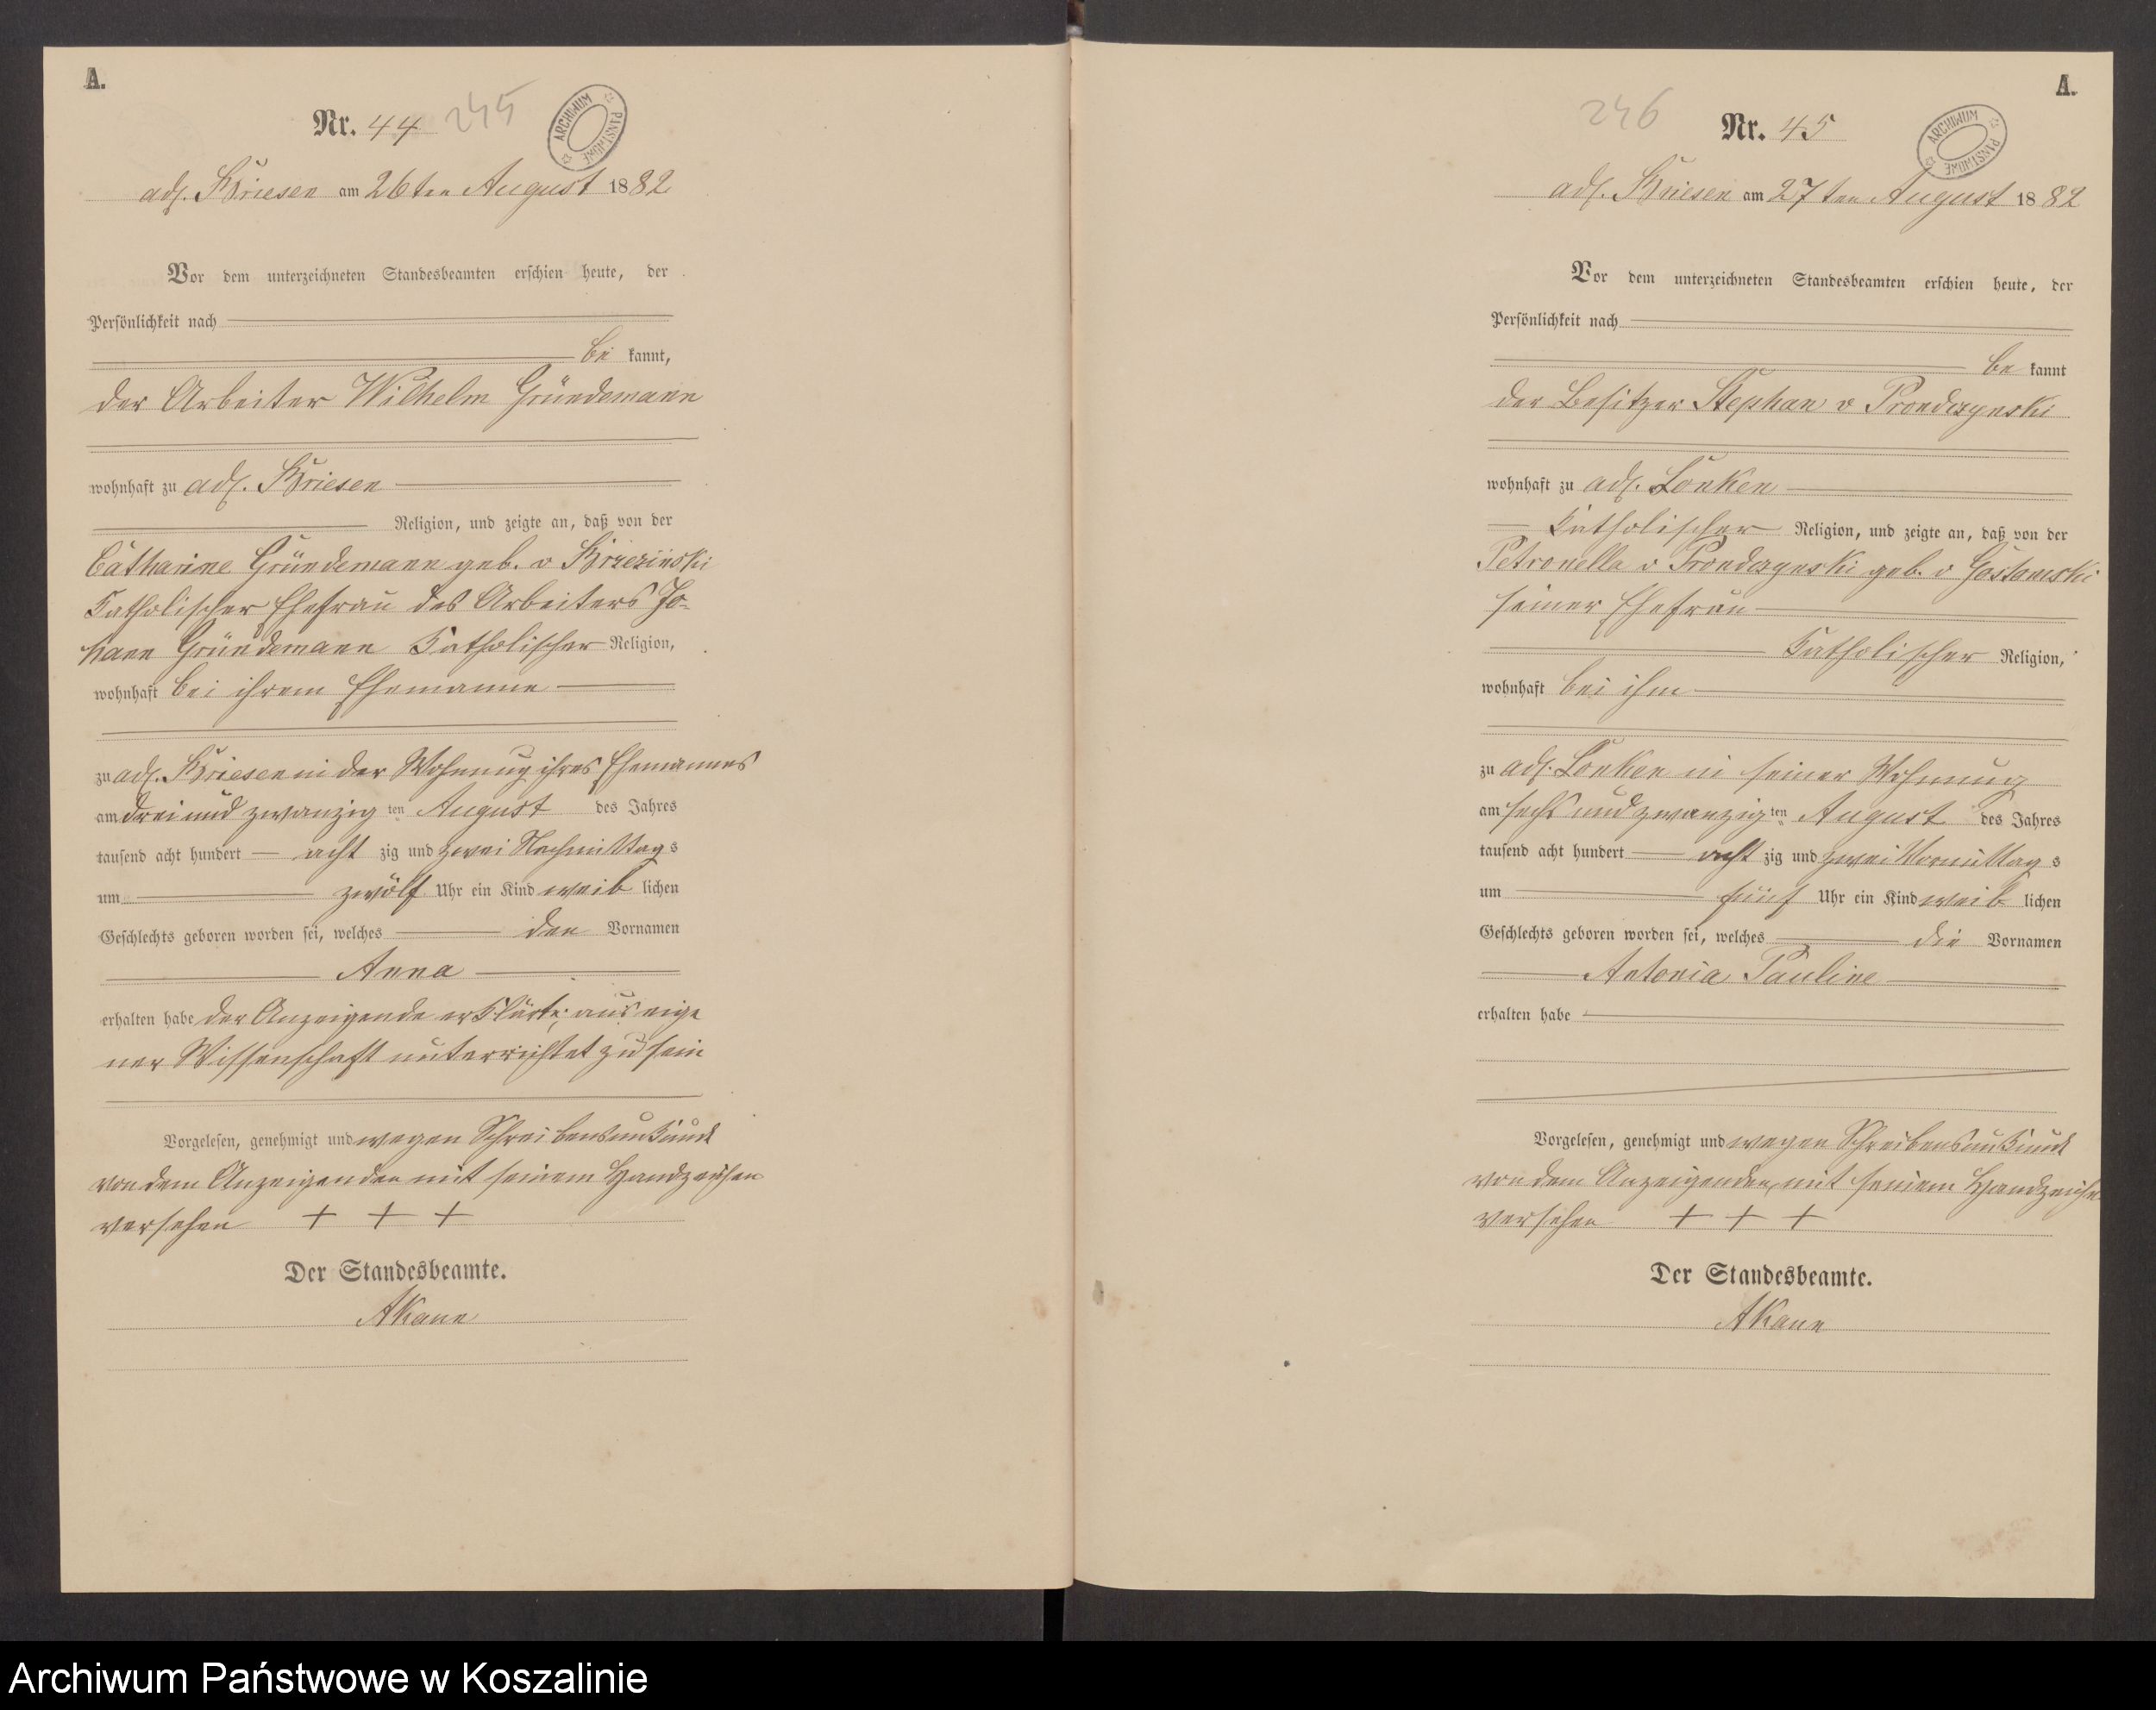 A.
Nr. 44 245
ARCHIWUM PAŃSTWOWE
adl. Briesen am 26ten August 1882
Vor dem unterzeichneten Standesbeamten erschien heute, der
Persönlichkeit nach
be kannt,
der Arbeiter Wilhelm Gründemann
wohnhaft zu adl. Briesen
Religion, und zeigte an, daß von der
Catharine Gründemann geb. v Brzezinski
katholischer Ehefrau des Arbeiters Jo-
hann Gründemann katholischer Religion,
wohnhaft bei ihrem Ehemanne
zu adl. Briesen in der Wohnung ihres Ehemannes
am drei und zwanzig ten August des Jahres
tausend acht hundert acht zig und zwei Nachmittag s
um zwölf Uhr ein Kind weib lichen
Geschlechts geboren worden sei, welches den Vornamen
Anna
erhalten habe der Anzeigende erklärte, aus eige
ner Wissenschaft unterrichtet zu sein
Vorgelesen, genehmigt und wegen Schreibensunkunde
von dem Anzeigenden mit seinem Handzeichen
versehen + + +
Der Standesbeamte.
AKane
A.
246 Nr. 45
ARCHIWUM PAŃSTWOWE
adl. Briesen am 27ten August 1882
Vor dem unterzeichneten Standesbeamten erschien heute, der
Persönlichkeit nach
be kannt
der Besitzer Stephan v Prondzynski
wohnhaft zu adl. Lonken
katholischer Religion, und zeigte an, daß von der
Petronella v Prondzynski geb. v Gostomski
seiner Ehefrau
katholischer Religion,
wohnhaft bei ihm
zu adl. Lonken in seiner Wohnung
am sechs und zwanzig ten August des Jahres
tausend acht hundert acht zig und zwei Vormittag s
um fünf Uhr ein Kind weib lichen
Geschlechts geboren worden sei, welches die Vornamen
Antonia Pauline
erhalten habe
Vorgelesen, genehmigt und wegen Schreibensunkunde
von dem Anzeigenden mit seinem Handzeichen
versehen + + +
Der Standesbeamte.
AKane
Archiwum Państwowe w Koszalinie